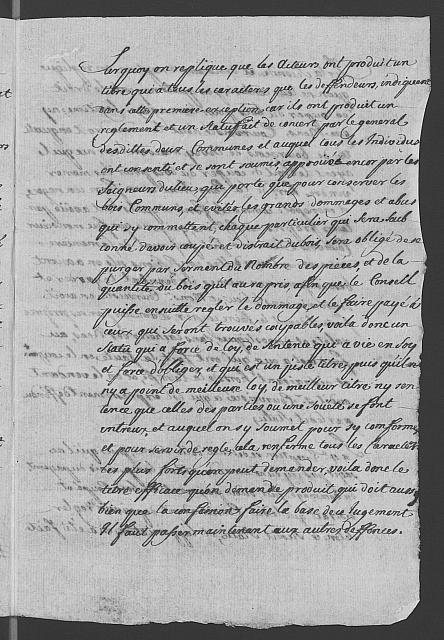 Surquoy on replique que les Acteurs ont produit un
titre qui a tous les caracteres que les deffendeurs, indiquent
dans cette premiere exception, car ils ont produit un
reglement et un Statu fait de concert par le general
desdittes deux Communes et auquel tous les Individus
ont consenti et se sont soumis, approuvé encor par les
Seigneurs du lieu, qui porte que pour conserver les
bois Communs, et eviter les grands dommages et abus
qui s'y commettent, chaque particulier qui sera soub
conné d'avoir coupé et distrait du bois, sera obligé de se
purger par serment du Nombre des pieces, et de la
quantité du bois qu'il aura pris, afin que le Conseil
puisse ensuitte regler le dommage, et le faire payé à
ceux qui seront trouvés coupables, voila donc un
Statu qui a force de loy, de sentence qui a vie en soy
et force d'obliger et qui est un juste titre, puis qu'il n'y
ny a point de meilleure loy, de meilleur titre ny sen
tence, que celles des parties ou une société se font
entreux, et auquel on sy soumet pour sy conformer
et pour servir de regle, cela renferme tous les Caracte
res plus forts qu'on peut demander, voila donc le
titre efficace qu'on demande produit, qui doit aussi
bien que la confession faire la base de ce Jugement
Il faut passer maintenant aux autres deffences.